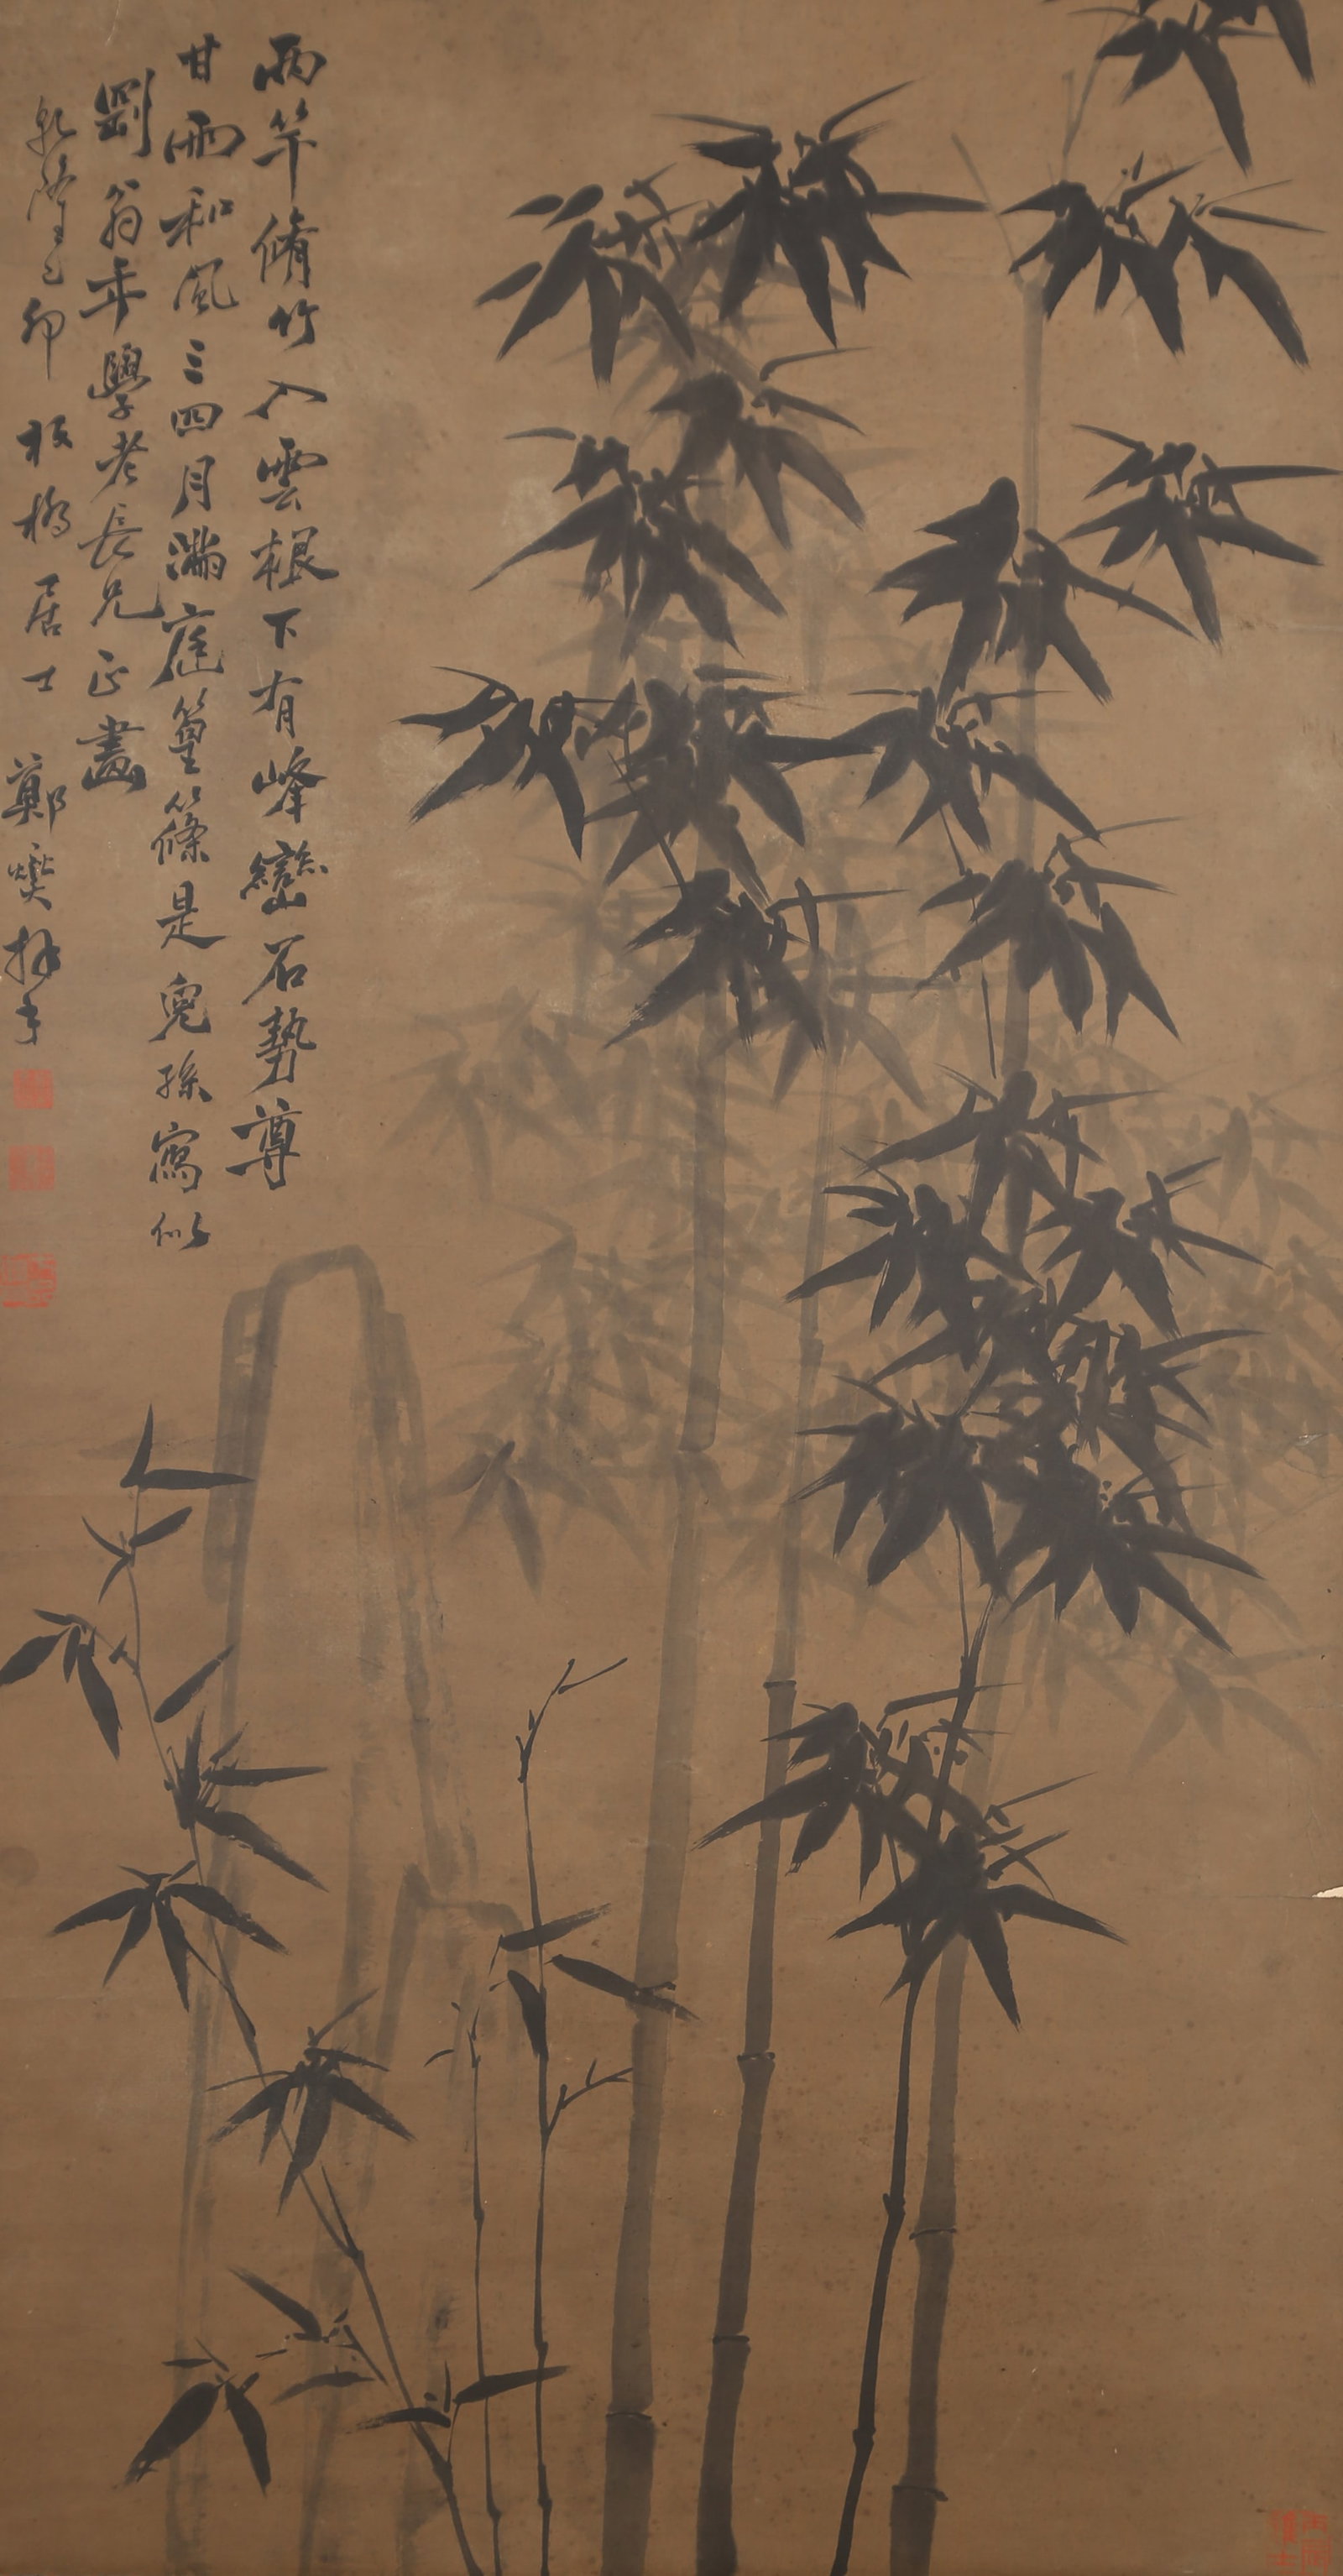 兩竿脩竹入雲根下有峰巒石勢尊
甘雨和風三四月滿庭篁篠是兒孫寫似
劉翁年學老長兄正畫
乾隆己卯板橋居士鄭燮拜手